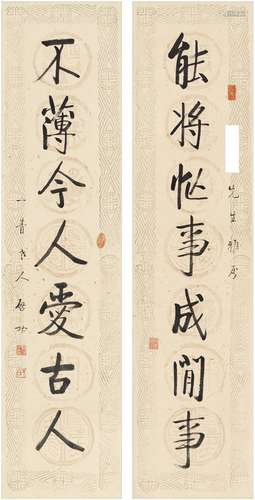 能将忙事成閒事
先生雅属
不薄今人愛古人
启功